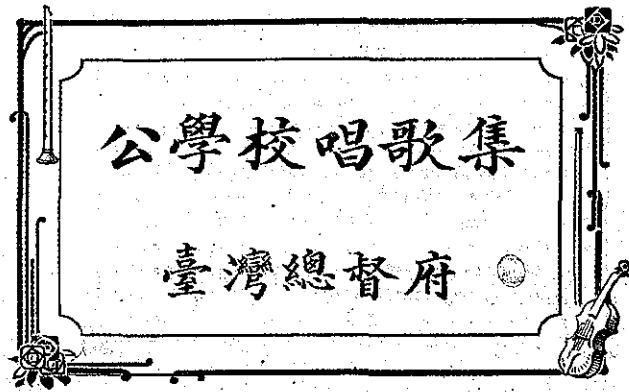 公學校唱歌集
臺灣總督府